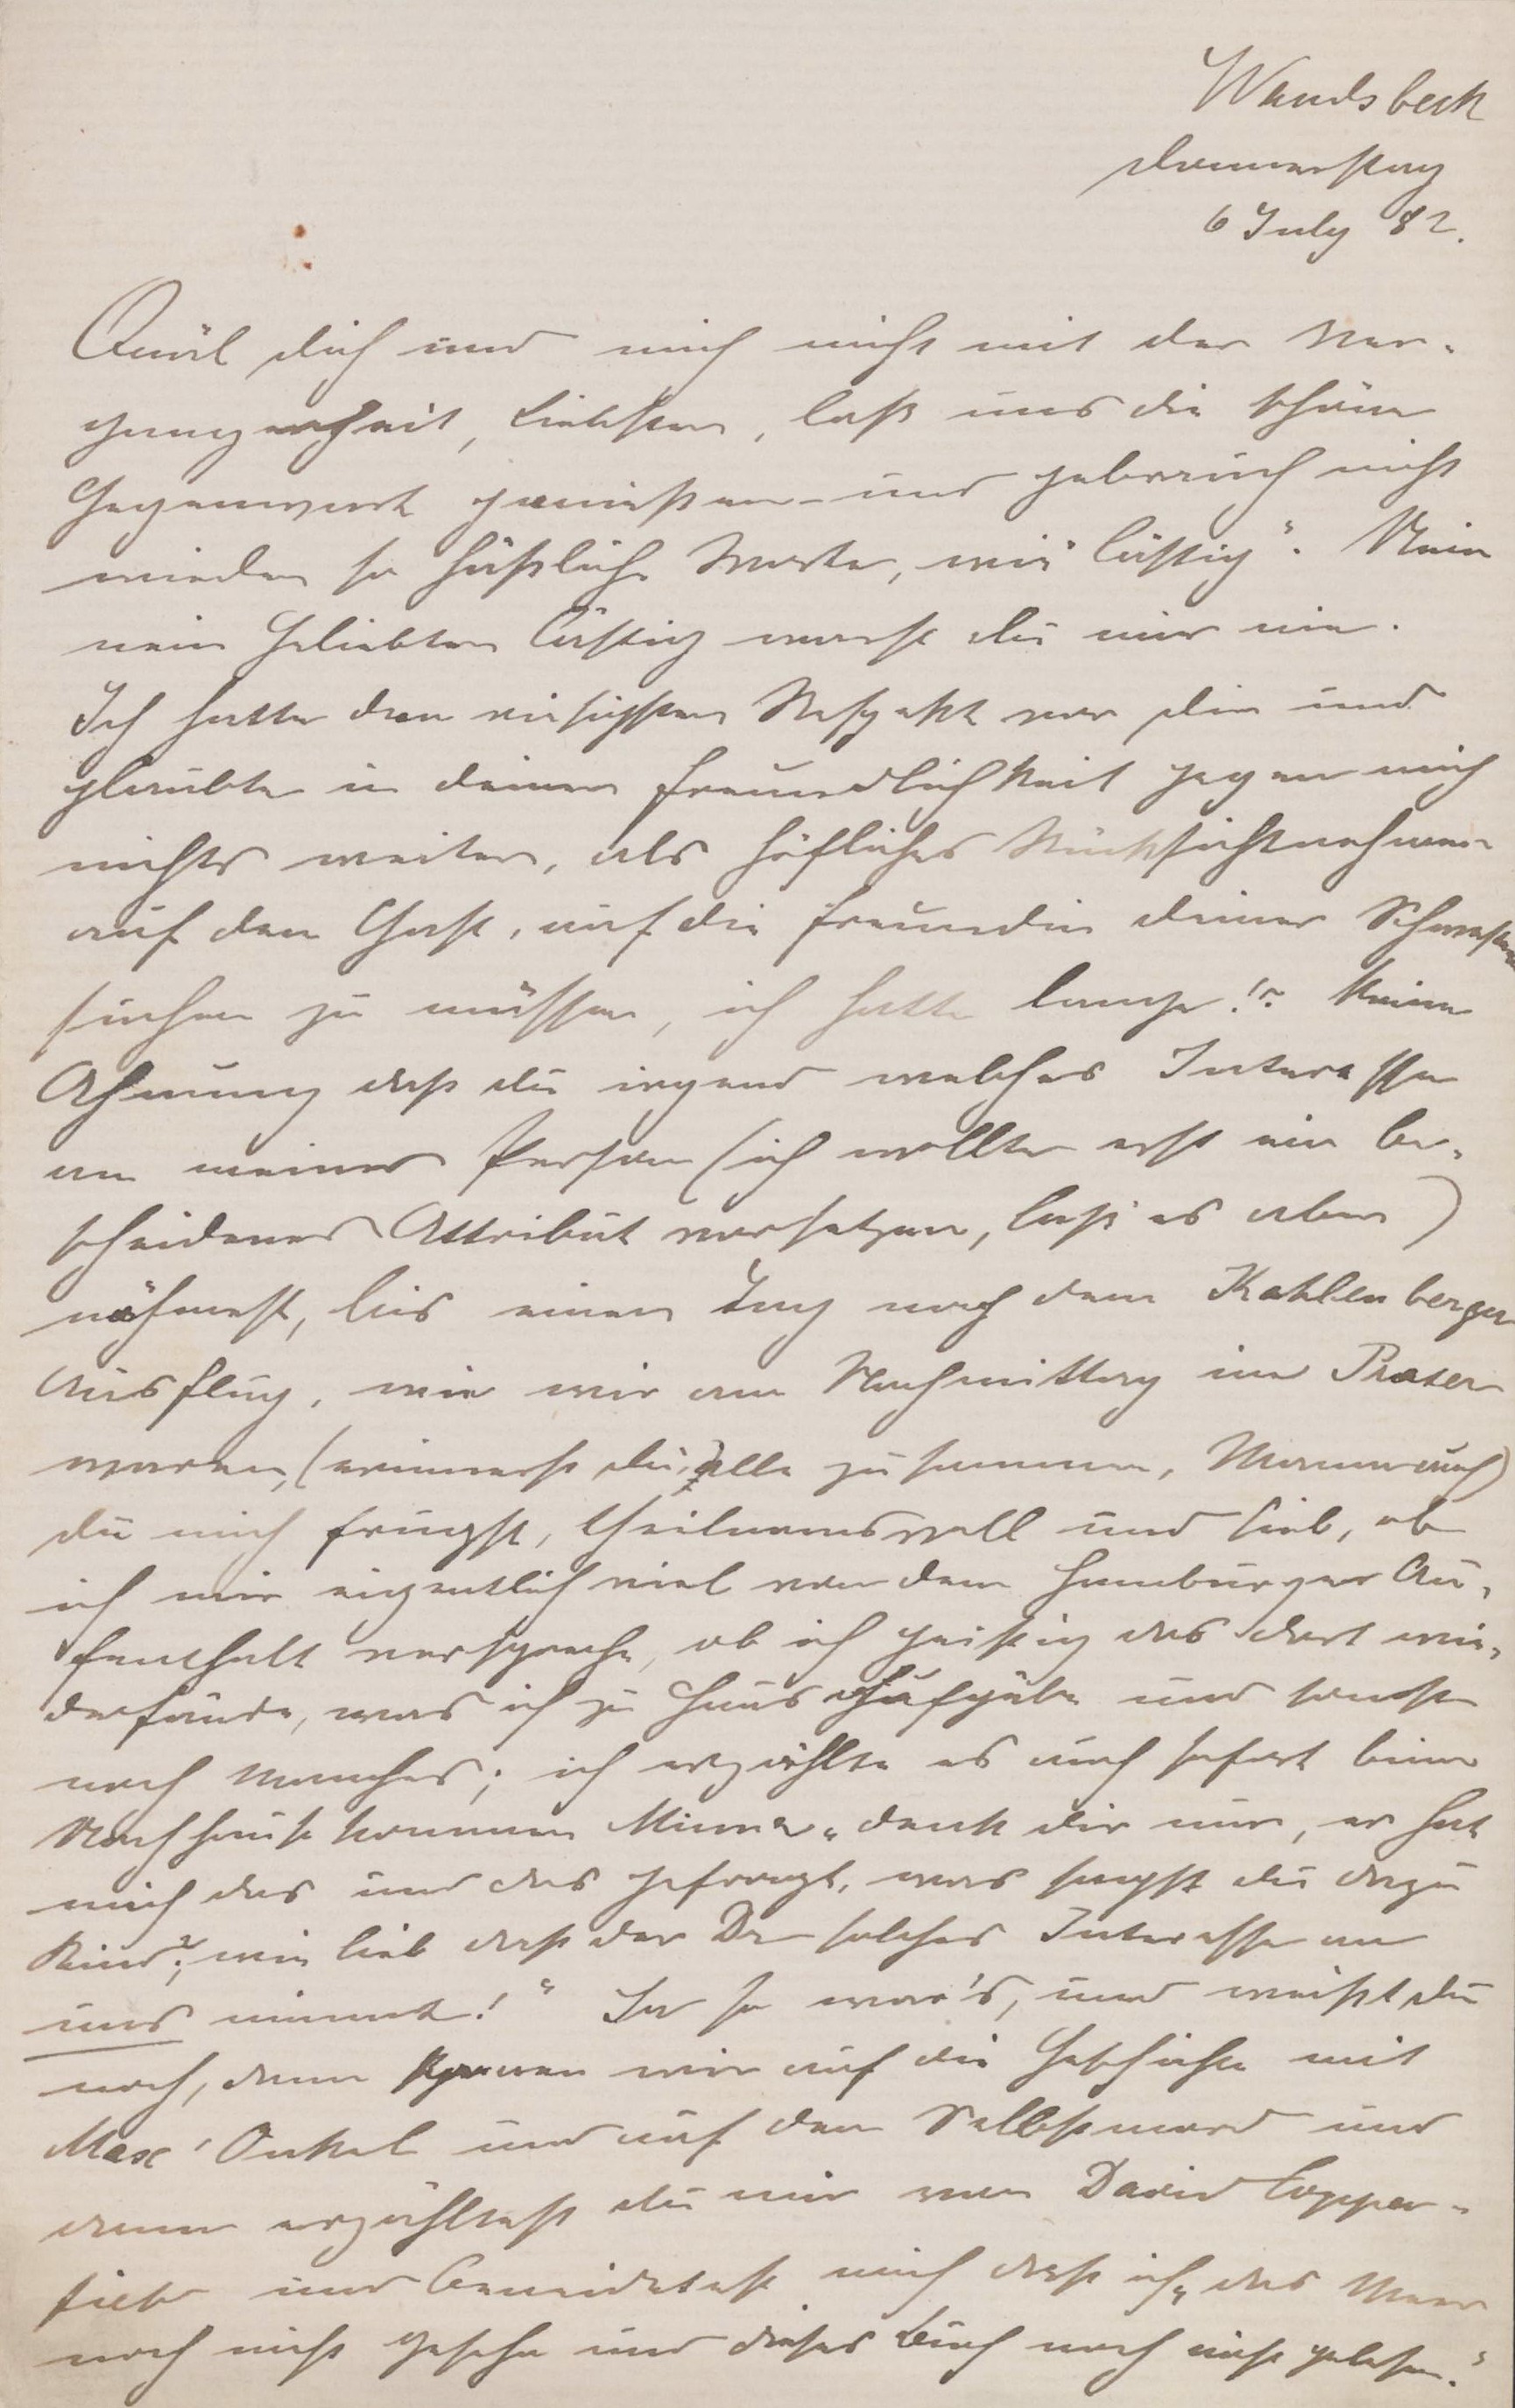 Wandsbeck
Donnerstag
6 July 82.
Quäl dich und mich nicht mit der Ver-
gangenheit, Liebster, laß uns die schöne
Gegenwart genießen und gebrauch nicht
wieder so häßliche Worte, wie "lästig". Nein
nein Geliebter lästig warst du mir nie.
Ich hatte den riesigsten Respekt vor dir und
glaubte in deiner Freundlichkeit gegen mich
nichts weiter, als höfliches Rücksichtnehmen
auf den Gast, auf die Freundin deiner Schwestern
suchen zu müssen, ich hatte lange!? keine
Ahnung daß du irgend welches Interesse
an meiner Person (ich wollte erst ein be-
scheidenes Attribut vorsetzen, laß es aber)
nähmest, bis einen Tag nach dem Kahlenberger
Ausflug, wie wir am Nachmittag im Prater
waren, (erinnerst du, alle zusammen, Mama auch)
du mich frugst, theilnamsvoll und lieb, ob
ich mir eigentlich viel von dem Hamburger Au-
fenthalt verspreche, ob ich geistig das dort wie-
derfände, was ich zu Haus aufgäbe und sonst
noch Manches; ich erzählte es auch sofort beim
Nachhausekommen Minna "denk dir nur, er hat
mich das und das gefragt, was sagst du dazu
Kind?, wie lieb daß der Dr solches Interesse an
uns nimmt!" Ja so war's, und weißt du
noch, dann kamen wir auf die Geschichte mit
Max' Onkel und auf den Selbstmord und
dann erzähltest du mir von David Copper-
field und beneidetest mich daß ich "das Meer
noch nicht gesehn und dieses Buch noch nicht gelesen."